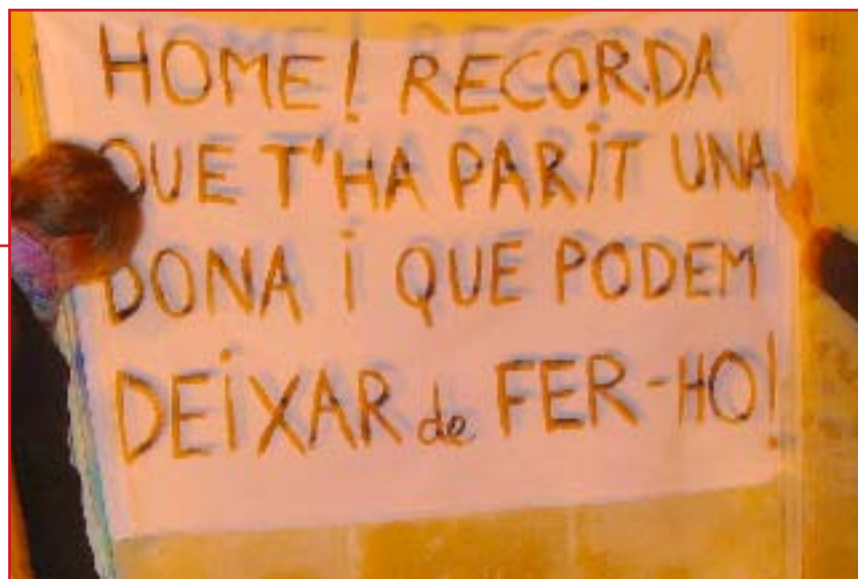 HOME! RECORDA
QUE T'HA PARIT UNA
DONA I QUE PODEM
DEIXAR de FER-HO!